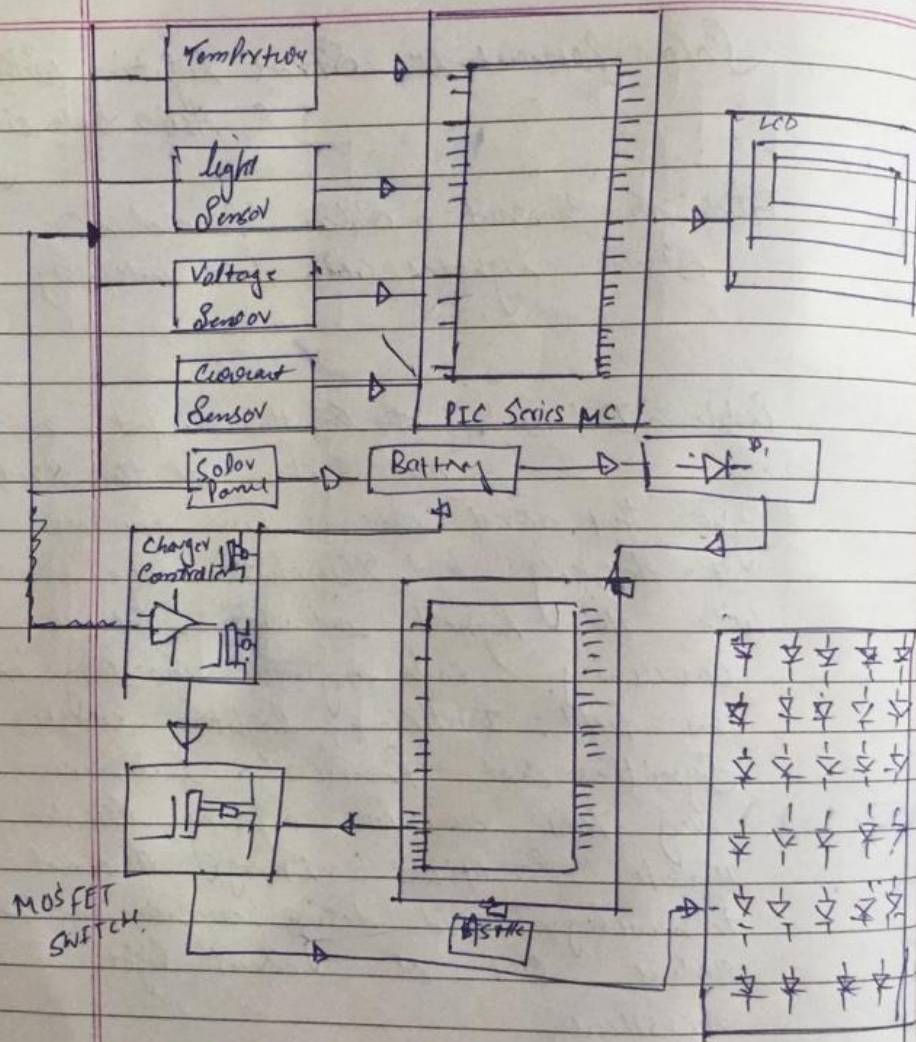 Tempertury
LCD
light
Sensor
Voltage
Sensor
Current
Sensor
PIC Series MC
Solar
Panel
Battery
D1
Charger
Controller
MOSFET
SWITCH.